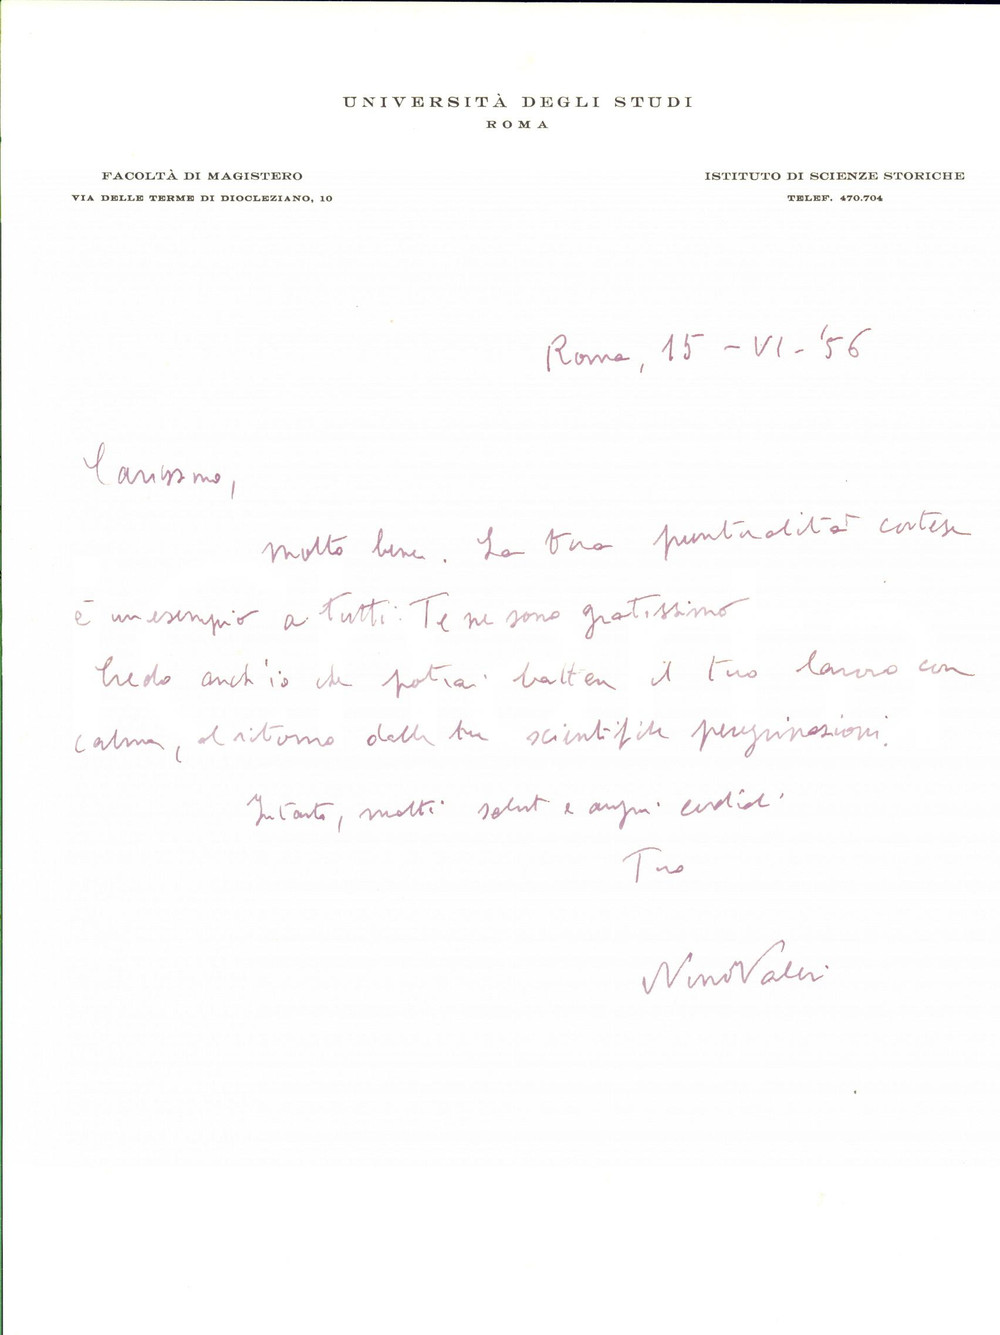 UNIVERSITÀ DEGLI STUDI
ROMA
FACOLTÀ DI MAGISTERO
VIA DELLE TERME DI DIOCLEZIANO, 10
ISTITUTO DI SCIENZE STORICHE
TELEF. 470.704
Roma, 15 - VI - '56
Carissimo,
molto bene. La tua puntualità cortese
è un esempio a tutti. Te ne sono gratissimo
Credo anch'io che potrai battere il tuo lavoro con
calma, al ritorno delle tue scientifiche peregrinazioni.
Intanto, molti saluti e auguri cordiali
Tuo
Nino Valeri